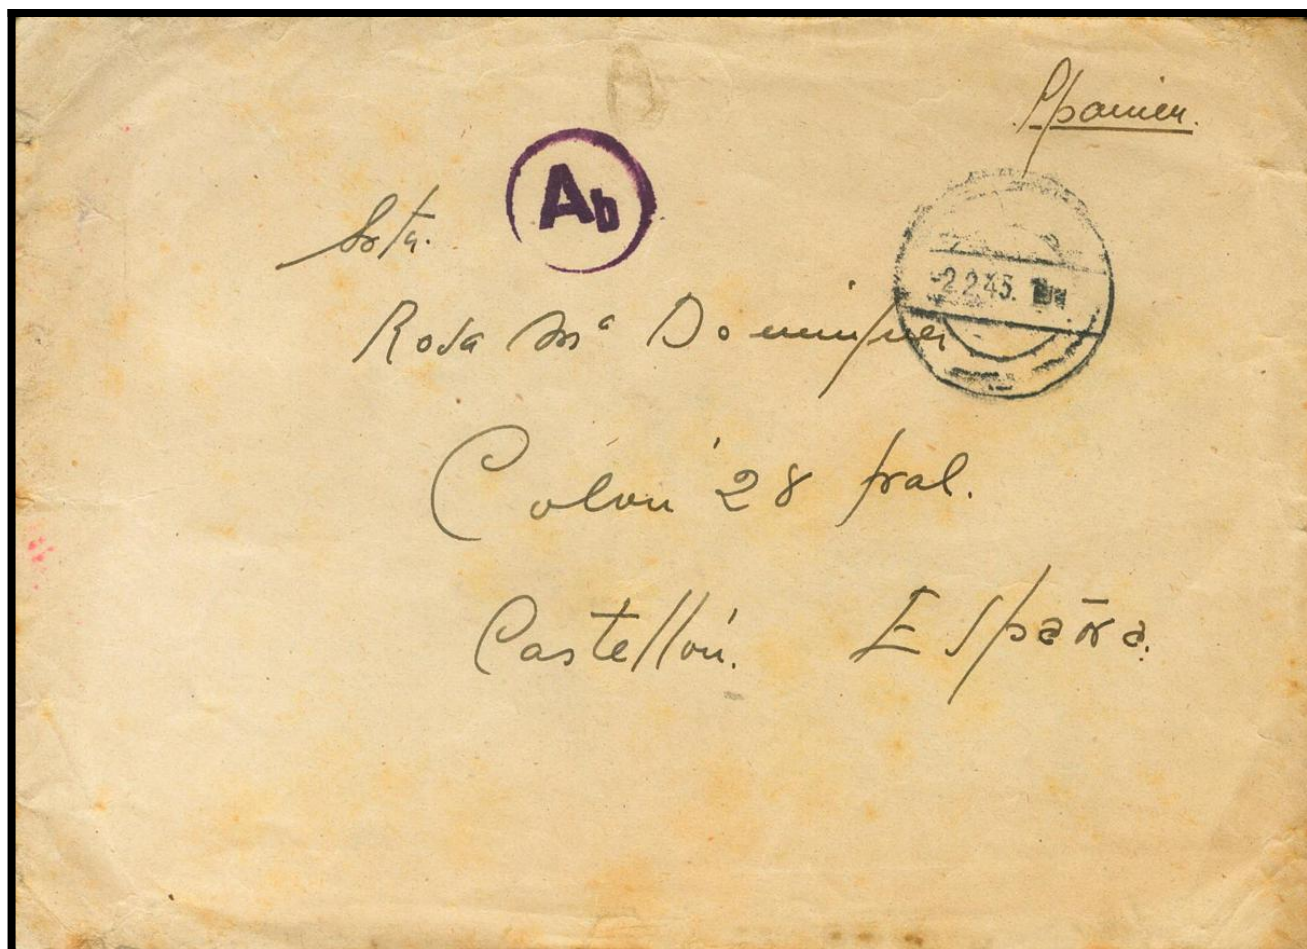 Spanien.
Ab
Srta.
-2.2.45.
Rosa Mª Dominguez
Colón 28 pral.
Castellón. España.